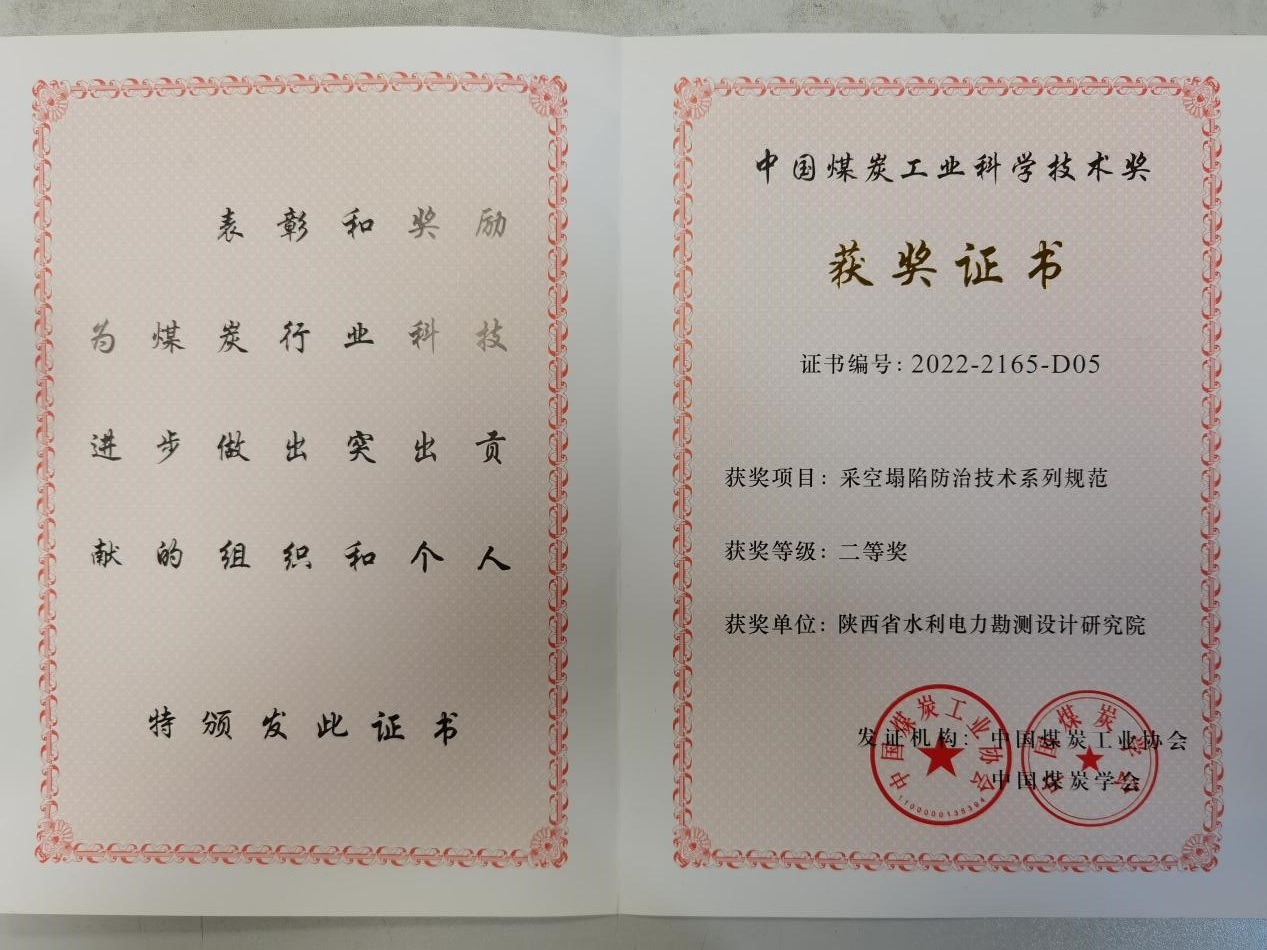 表彰和奖励
为煤炭行业科技
进步做出突出贡
献的组织和个人
特颁发此证书
中国煤炭工业科学技术奖
获奖证书
证书编号：2022-2165-D05
获奖项目：采空塌陷防治技术系列规范
获奖等级：二等奖
获奖单位：陕西省水利电力勘测设计研究院
发证机构：中国煤炭工业协会
中国煤炭学会
中国煤炭工业协会
中国煤炭学会